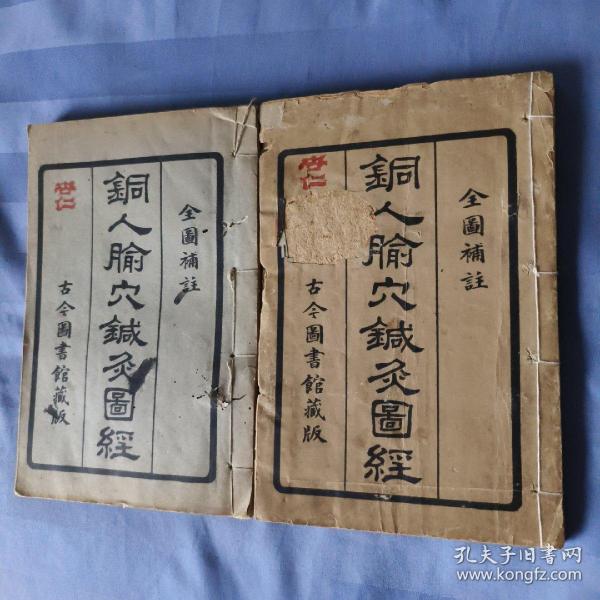 全圖補註
銅人腧穴鍼灸圖經
古今圖書館藏版
杏仁
全圖補註
銅人腧穴鍼灸圖經
古今圖書館藏版
杏仁
孔夫子旧书网
www.kongfz.com